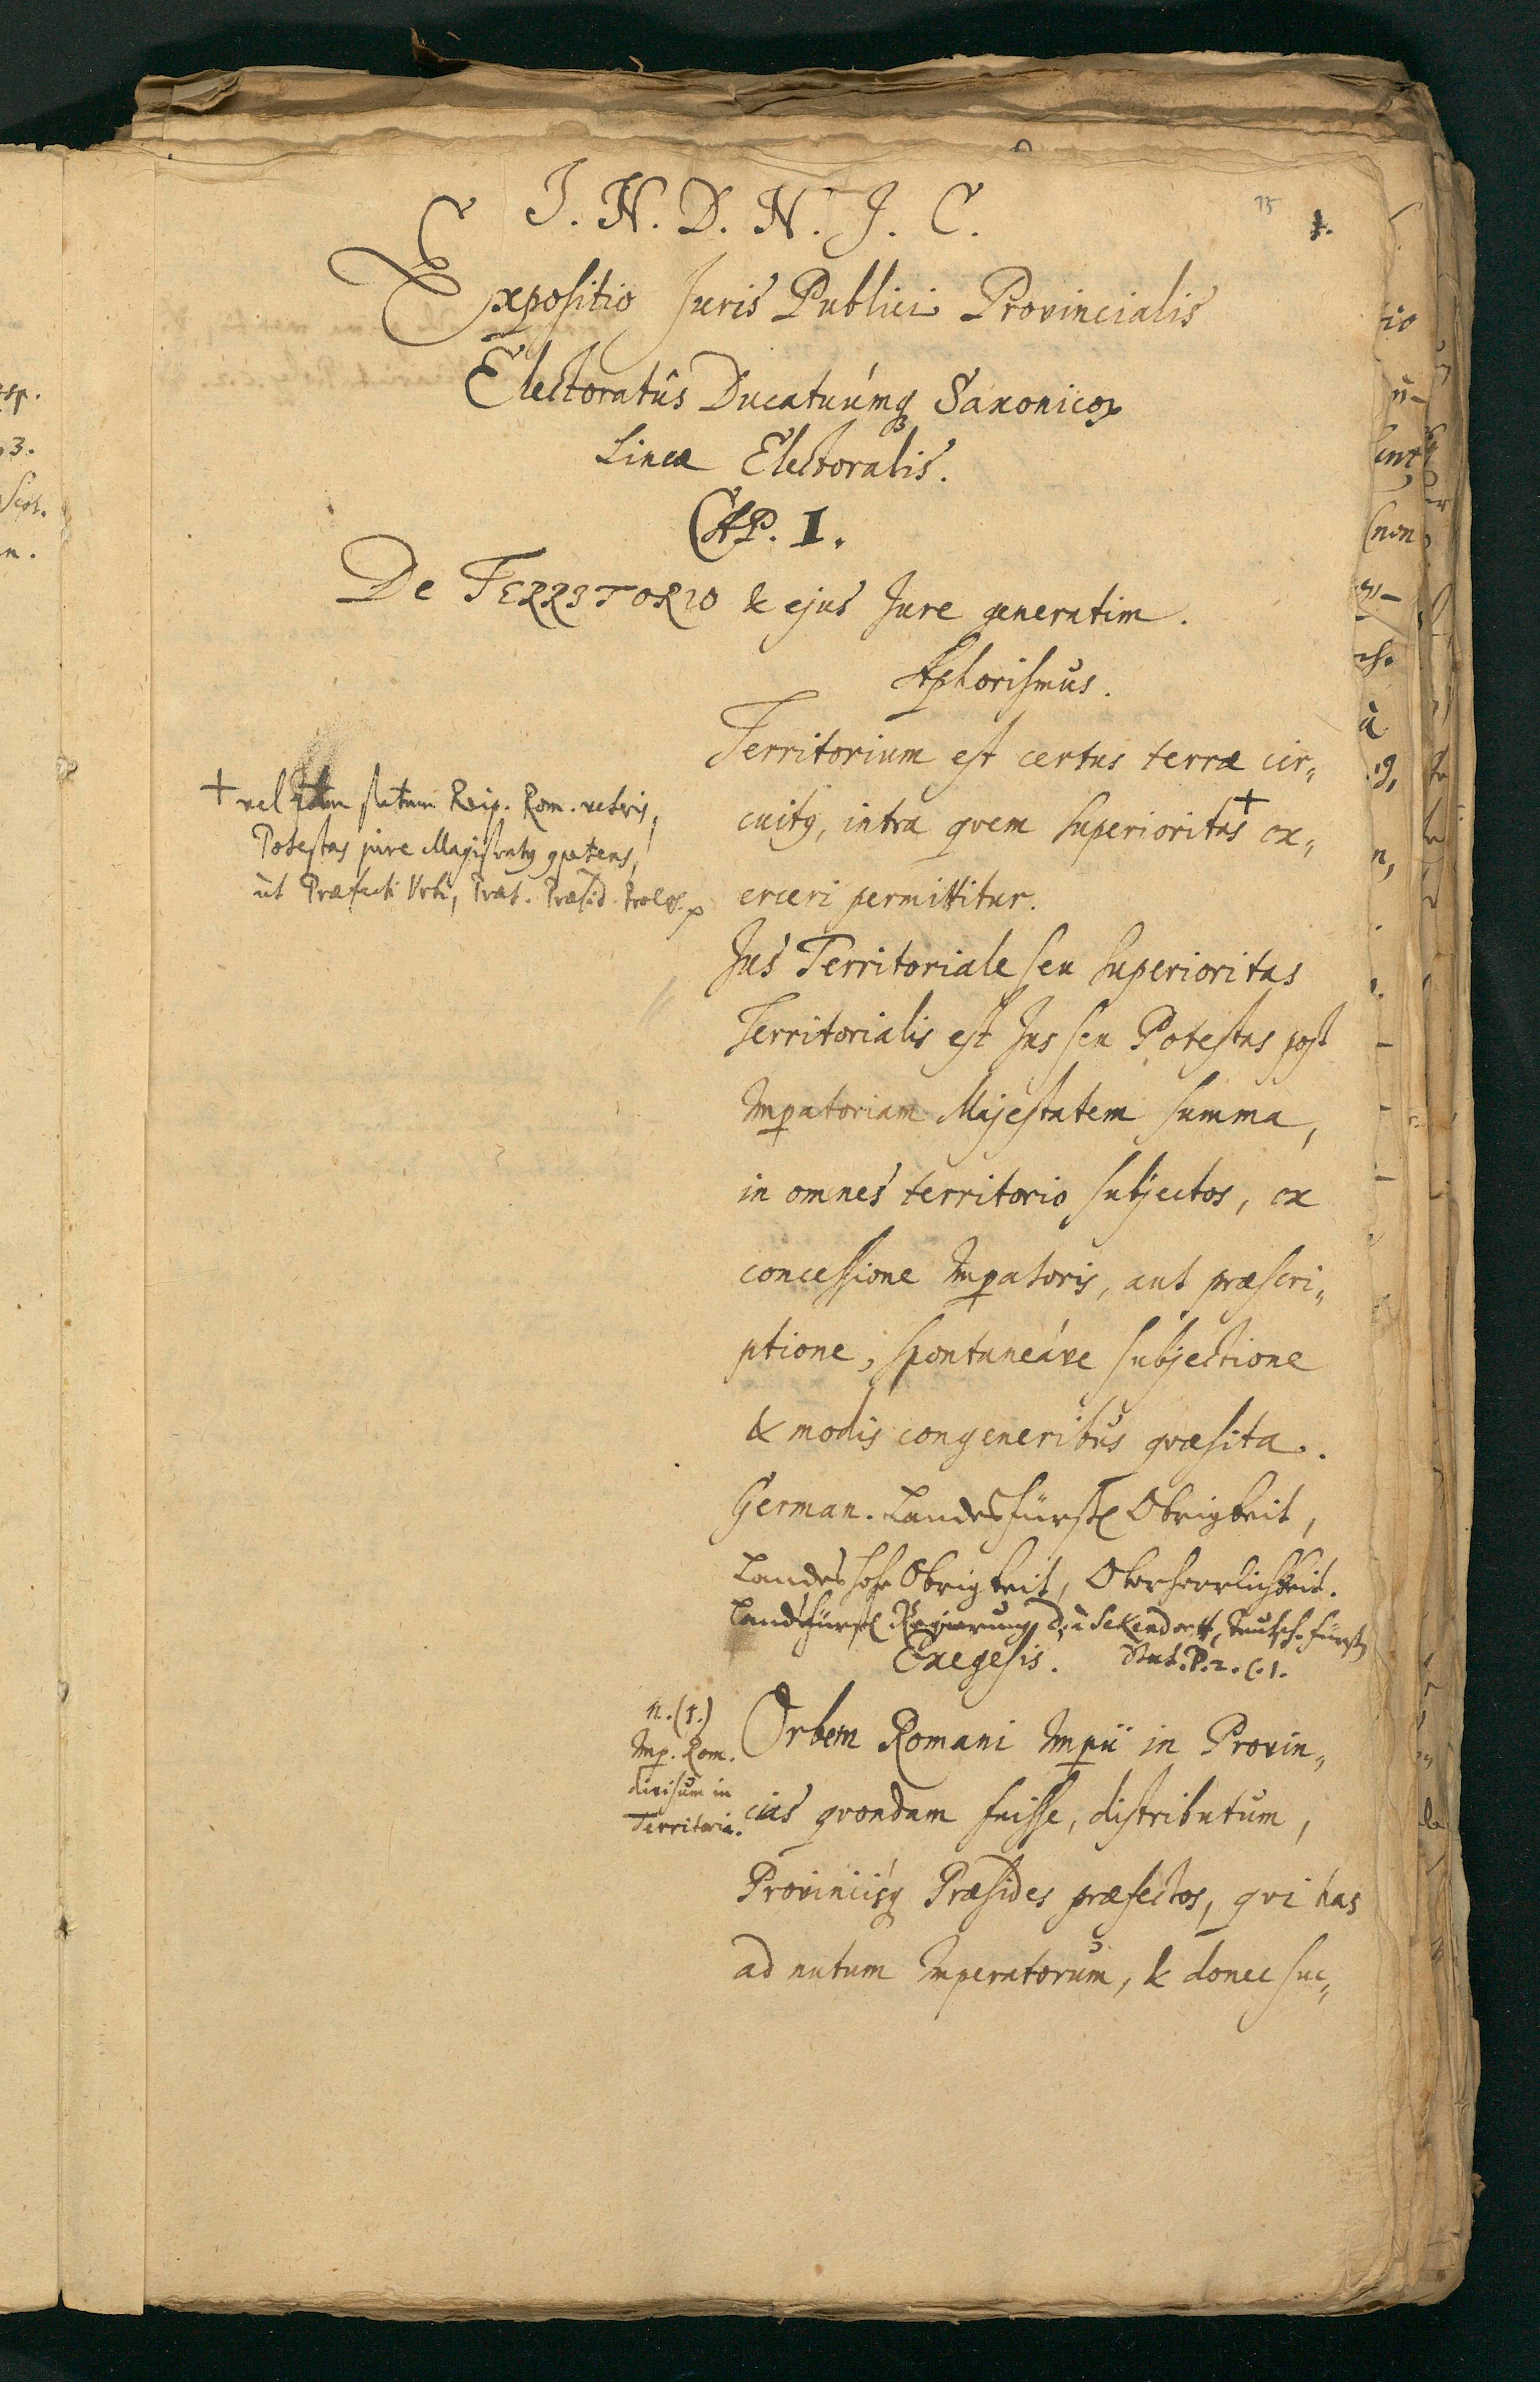 J. N. D. N. J. C.
75 1.
Expositio Juris Publici Provincialis
Electoratûs Ducatuúmq₃ Saxonicoꝝ
Lineæ Electoralis.
CAP. I.
De TERRITORIO & ejus Jure generatim.
Aphorismus.
Territorium est certus terræ cir„
cuitꝰ, intra qvem Superioritas + ex„
erceri permittitur.
+ vel statum Reip. Rom. veteris,
Potestas jure Magistratꝰ ꝯpetens,
ut Præfecti Urbi, Præt. Præsid.
Jus Territoriale seu Superioritas
Territorialis est Jus seu Potestas post
Imꝑatoriam Majestatem summa,
in omnes territorio subjectos, ex
concessione Imꝑatoris, aut præscri„
ptione, spontaneáve subjectione
& modis congeneribus qvæsita.
German. Landesfürstl Obrigkeit,
Landes hohe Obrigkeit, Oberherrlichkeit.
Landsfürstl Regierung d. à Sekendorff, Teutsch. fürst
Stat. P. 2. c. 1.
Exegesis.
n. (1.)
Imp. Rom.
divisum in
Territoria.
Orbem Romani Imꝑii in Provin„
cias qvondam fuisse, distributum,
Provinciisq₃ Præsides præfectos, qvi has
ad nutum Imperatorum, & donec suc„